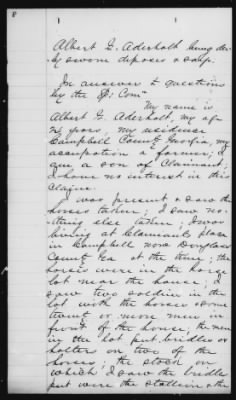 8
1
1
Albert G. Aderholt being du-
ly sworn deposes & says.
In answer to questions
by the Spl Comr
My name is
Albert G. Aderholt, my age
24 years, my residence
Campbell County Georgia, my
occupation a farmer; I
am a son of Claimant.
I have no interest in this
claim.
I was present & saw the
horses taken; I saw no-
thing else taken; I was
living at Claimants place
in Campbell now Douglass
County Ga at the time; the
horses were in the horse
lot near the house; I
saw two soldiers in the
lot with the horses & some
twenty or more men in
front of the house; the men
in the lot put bridles or
halters on two of the
horses; the stock on
which I saw the bridle
put were the stallion & the